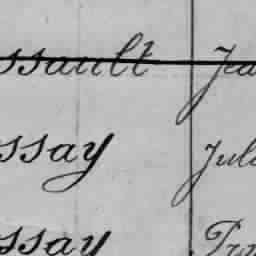 ssault Jea
ssay Jule
ssay Pro